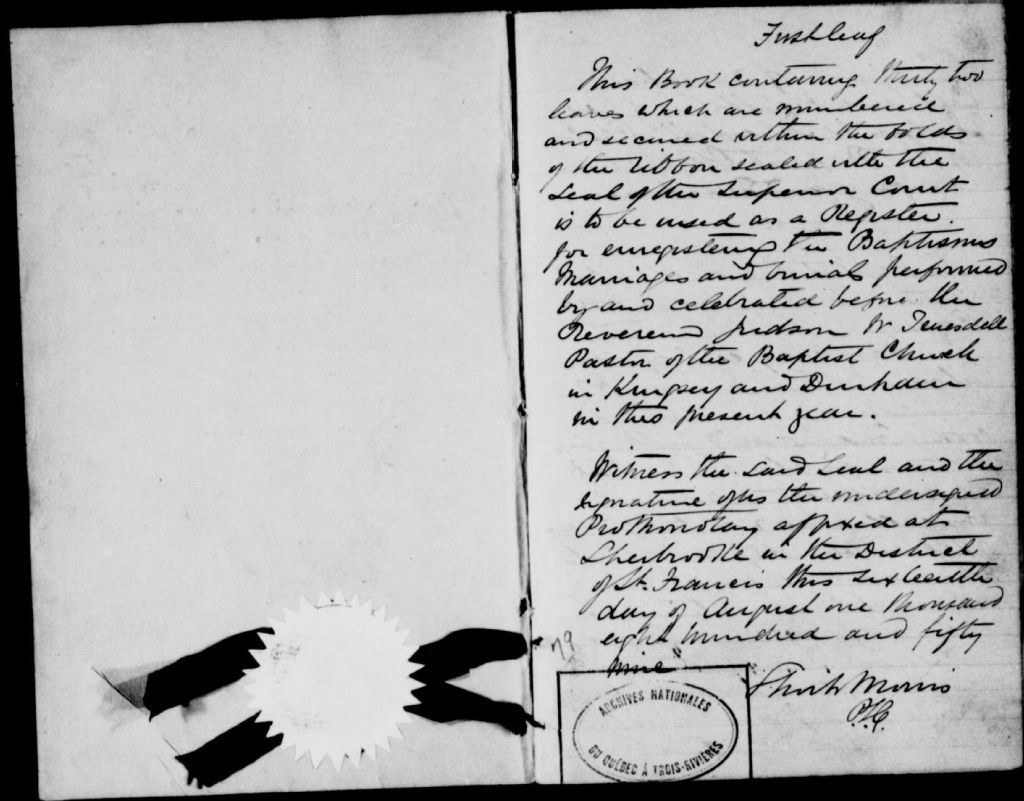 First leaf
This Book containing thirty two
leaves which are numbered
and secured within the folds
of the ribbon sealed with the
Seal of the Superior Court
is to be used as a Register
for enregistering the Baptisms
Marriages and burials performed
by and celebrated before the
Reverend Judson W Truesdell
Pastor of the Baptist Church
in Kingsey and Durham
in this present year.
Witness the said Seal and the
signature of us the undersigned
Prothonotary affixed at
Sherbrooke in the District
of St. Francis this sixteenth
day of August one thousand
eight hundred and fifty
nine
79
Short & Morris
P.S.C.
ARCHIVES NATIONALES
DU QUÉBEC À TROIS-RIVIÈRES